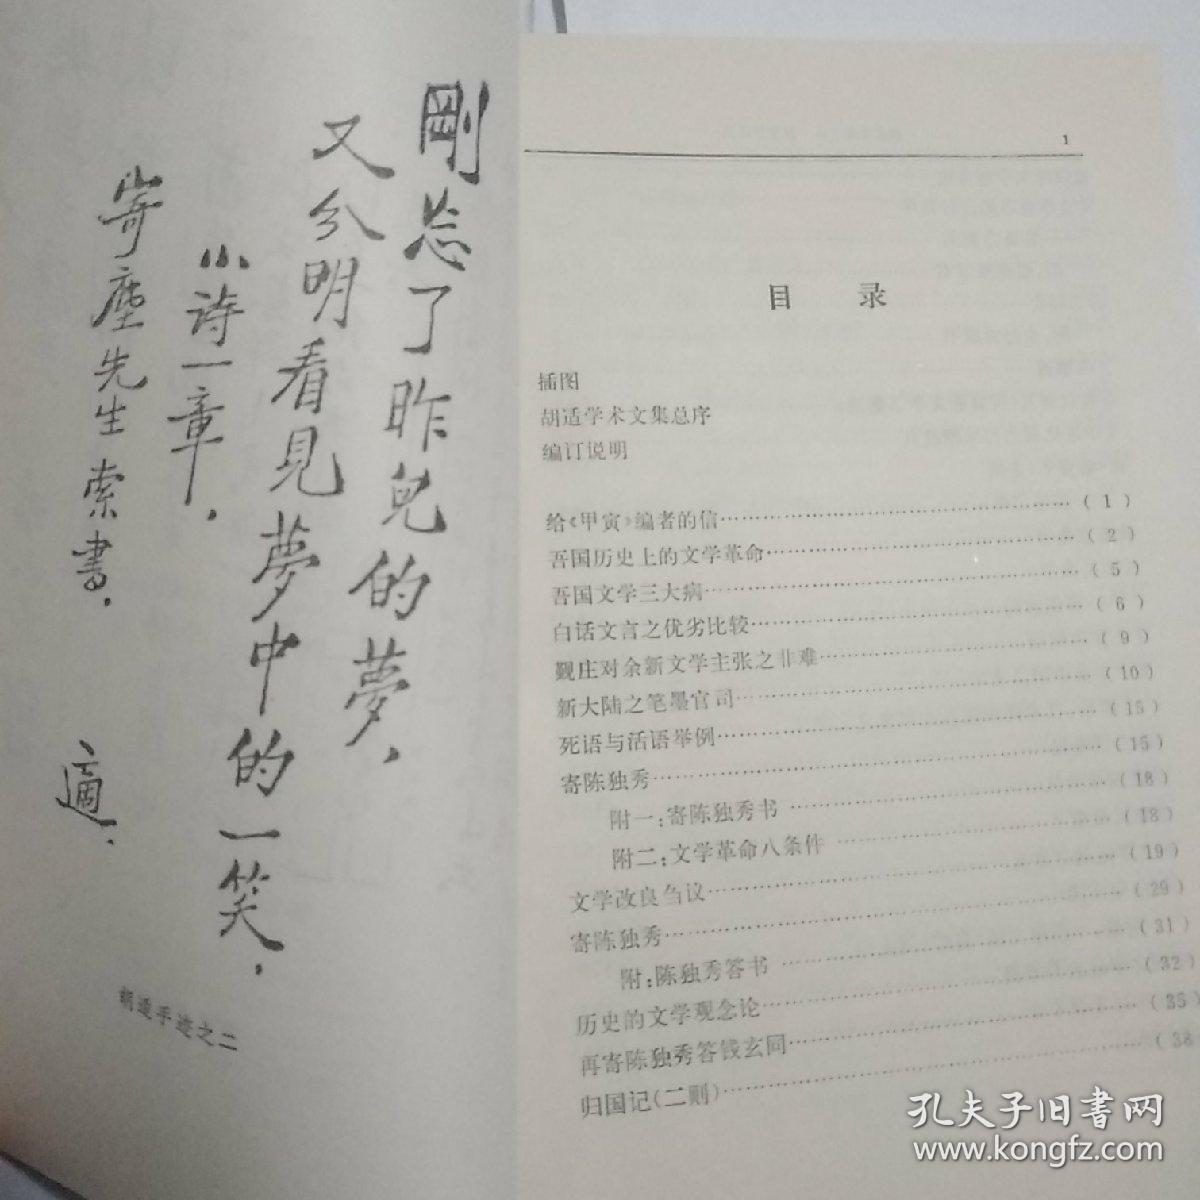 剛忩了昨兒的夢，
又分明看見夢中的一笑，
小诗一章，
寄塵先生索書．
適．
胡适手迹之二
1
目录
插图
胡适学术文集总序
编订说明
给《甲寅》编者的信……（1）
吾国历史上的文学革命……（2）
吾国文学三大病……（5）
白话文言之优劣比较……（6）
觐庄对余新文学主张之非难……（9）
新大陆之笔墨官司……（10）
死语与活语举例……（15）
寄陈独秀……（15）
附一：寄陈独秀书……（18）
附二：文学革命八条件……（18）
文学改良刍议……（19）
寄陈独秀……（29）
附：陈独秀答书……（31）
历史的文学观念论……（32）
再寄陈独秀答钱玄同……（35）
归国记（二则）……（38
孔夫子旧书网
www.kongfz.com